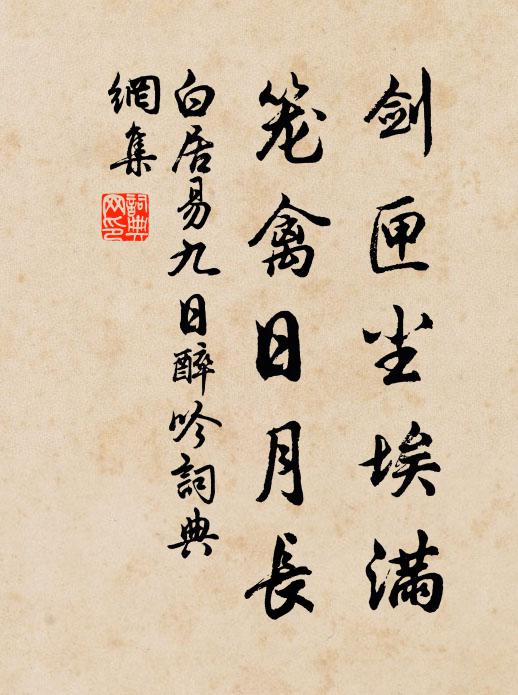 剑匣尘埃滿
笼禽日月長
白居易九日醉吟詞典
網集
詞典網印